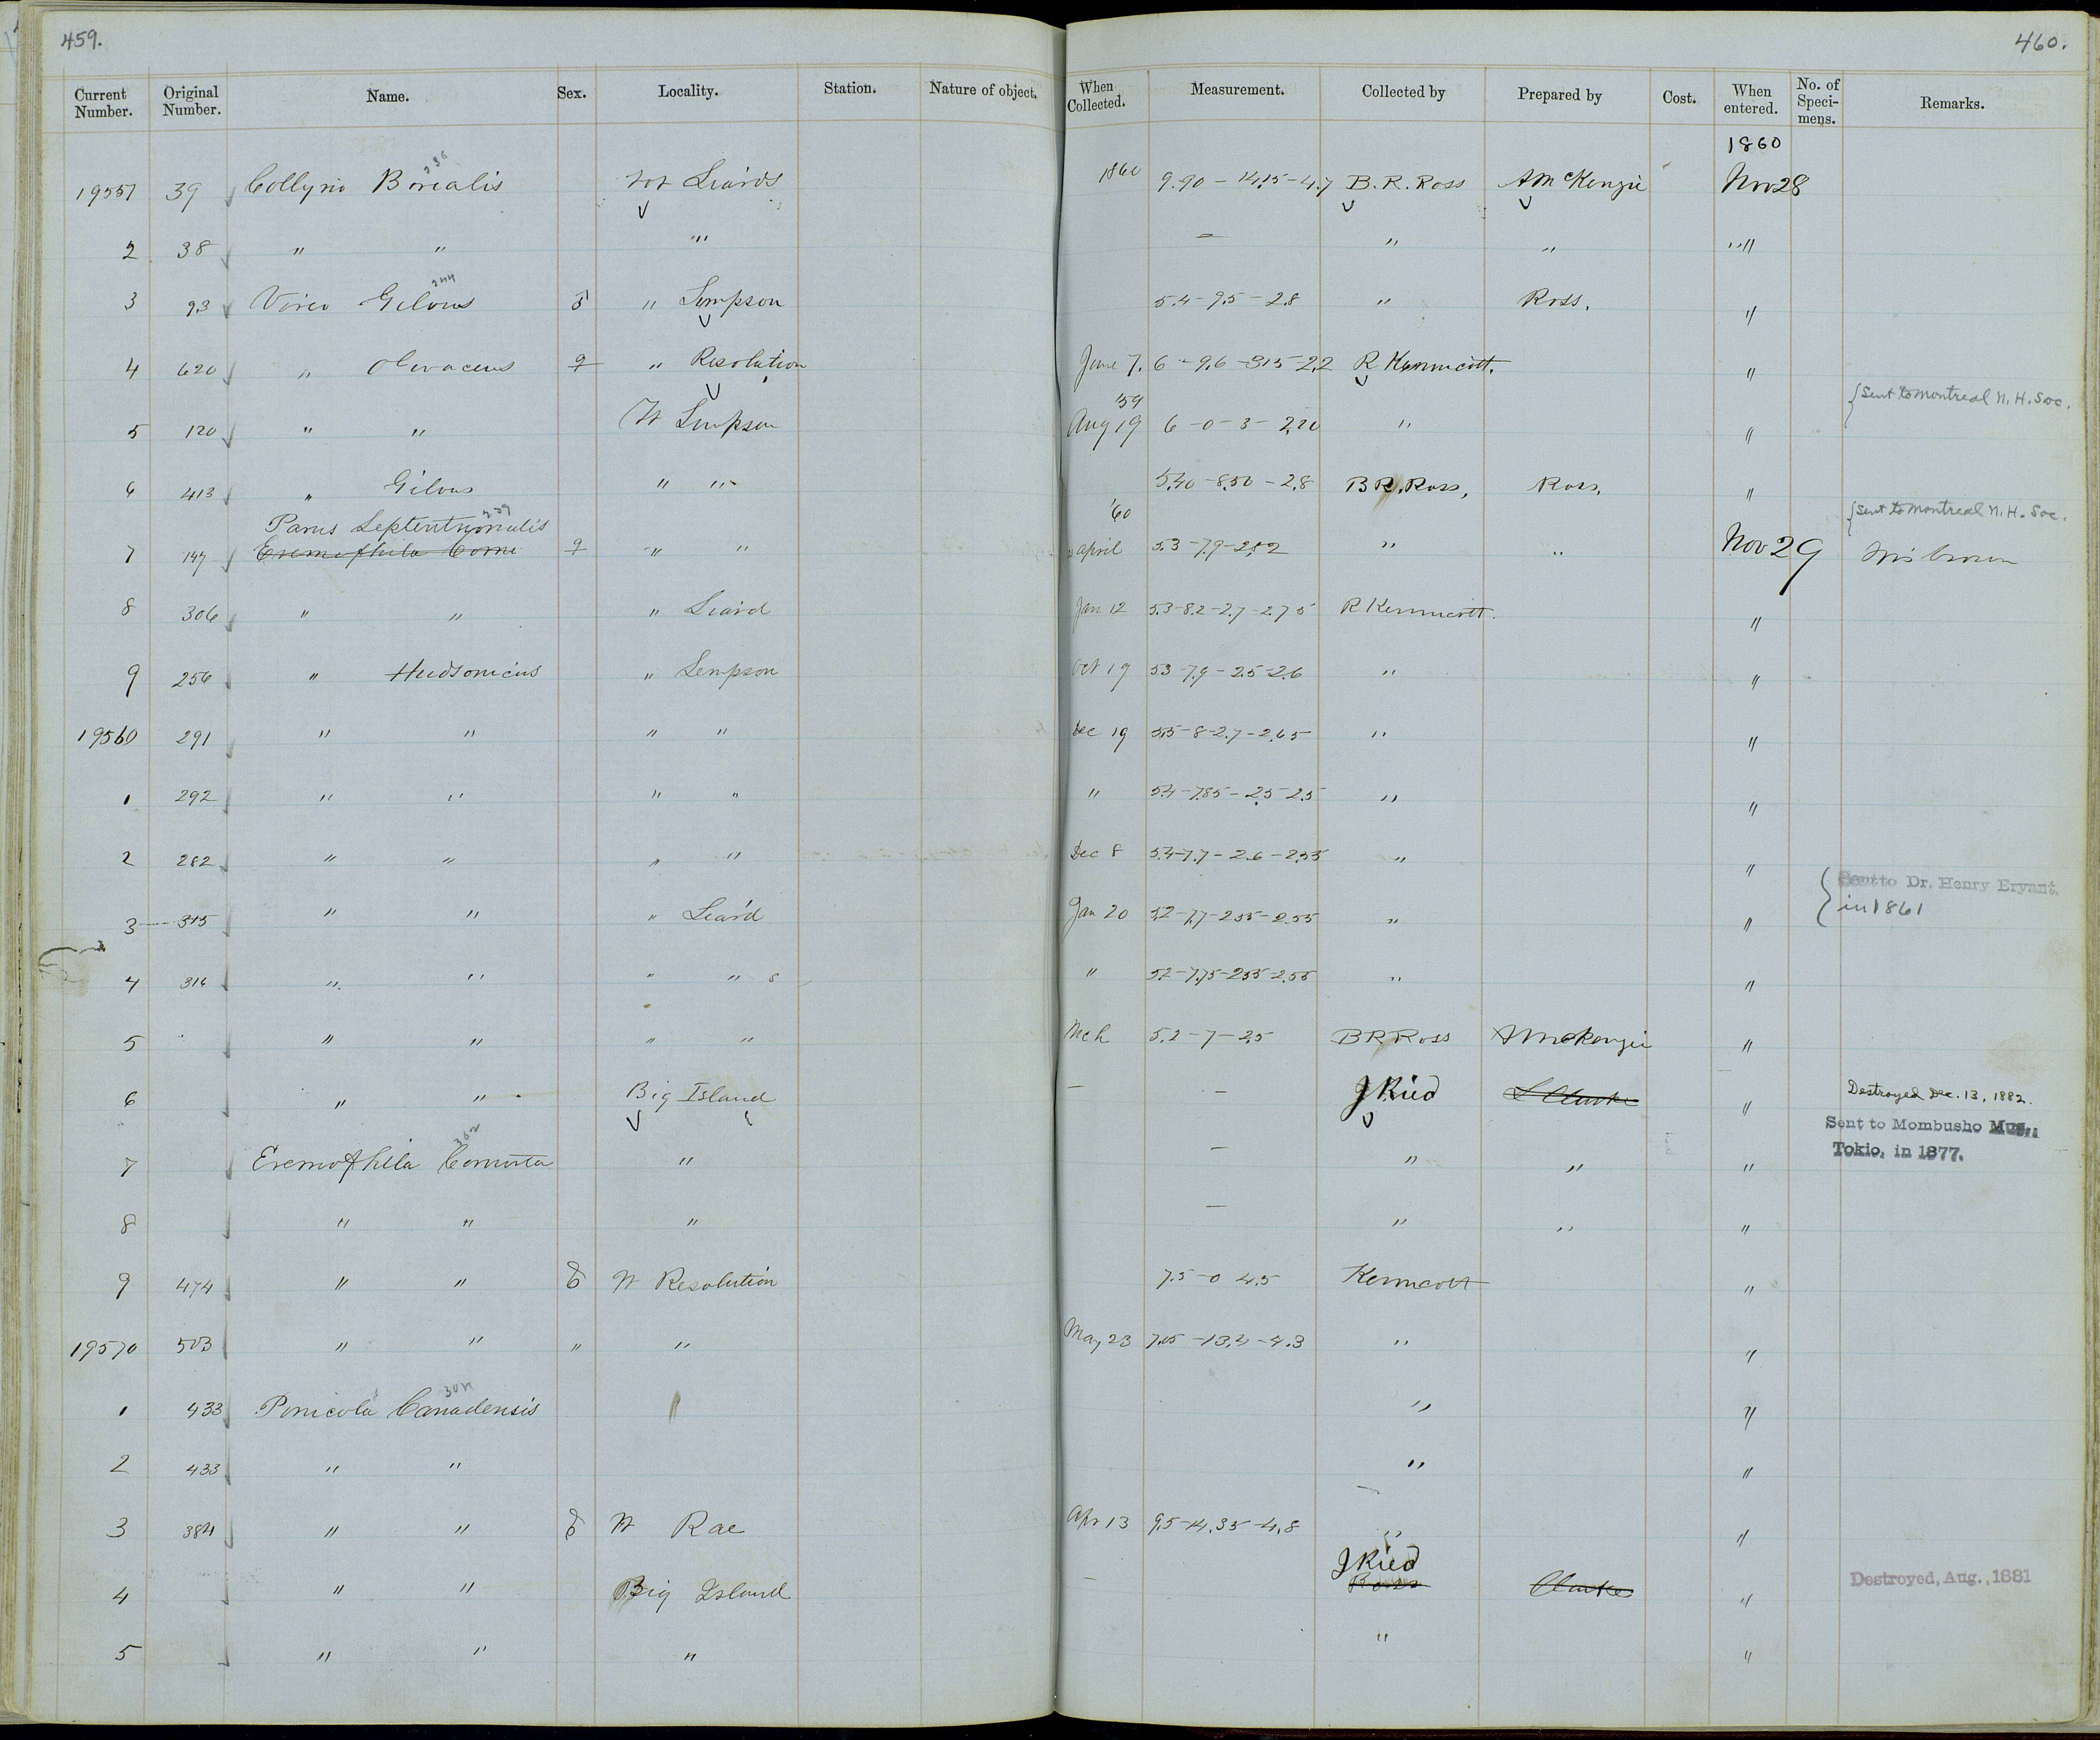 459.
460.
Current Number. Original Number. Name. Sex. Locality. Station. Nature of object. When Collected. Measurement. Collected by Prepared by Cost. When entered. No. of Speci-mens. Remarks.
1860
19551 39 Collyrio Borealis 236 Fort Liards 1860 9.90 - 14.15 - 4.7 B. R. Ross A McKenzie Nov 28
2 38 " " " — " " " "
3 93 Vireo Gilvus 244 ♂ " Simpson 5.4 - 9.5 - 2.8 " Ross. "
4 620 " Olivaceus ♀ " Resolution June 7. 6 - 9.6 - 315 - 2.2 R Kennicott. "
'59
{Sent to Montreal N. H. Soc.
5 120 " " Ft Simpson Aug 19 6 - 0 - 3 - 2,20 " "
6 413 " Gilvus " " 5.40 - 8.50 - 2.8 B R. Ross, Ross. "
'60
{Sent to Montreal N. H. Soc.
Parus Septentrionalis
7 147 Eremophila Corn ♀ " " April 5.3 - 7.9 - 2.52 " " Nov 29
8 306 " " " Liard Jan 12 5.3 - 8.2 - 2.7 - 2.75 R Kennicott. "
9 256 " Hudsonicus " Simpson Oct 19 5.3 - 7.9 - 2.5 - 2.6 " "
19560 291 " " " " Dec 19 5.5 - 8 - 2.7 - 2.65 " "
1 292 " " " " " 5.4 - 7.85 - 2.5 - 2.5 " "
2 282 " " " " Dec 8 5.4 - 7.7 - 2.6 - 2.55 " "
{Sent to Dr. Henry Eryant.
in 1861
3 315 " " " Liard Jan 20 5.2 - 7.7 - 2.55 - 2.55 " "
4 316 " " " " " 5.2 - 7.75 - 2.55 - 2.55 " "
5 " " " " Mch 5.2 - 7 - 2.5 B R Ross A McKenzie "
6 " " Big Island — — J Ried S Clarke " Destroyed Dec. 13, 1882.
Sent to Mombusho Mus.,
Tokio, in 1877.
7 Eremophila Cornuta 302 " — " " "
8 " " " — " " "
9 474 " " ♂ Ft Resolution 7.5 - 0 4.5 Kennicott "
19570 503 " " " " May 23 7.05 - 13.4 - 4.3 " "
1 433 Pinicola Canadensis 304 " "
2 433 " " " "
3 384 " " ♂ Ft Rae Apr 13 9.5 - 14.35 - 4.8 " "
J Ried
4 " " Big Island — Ross Clarke " Destroyed, Aug., 1881
5 " " " " "